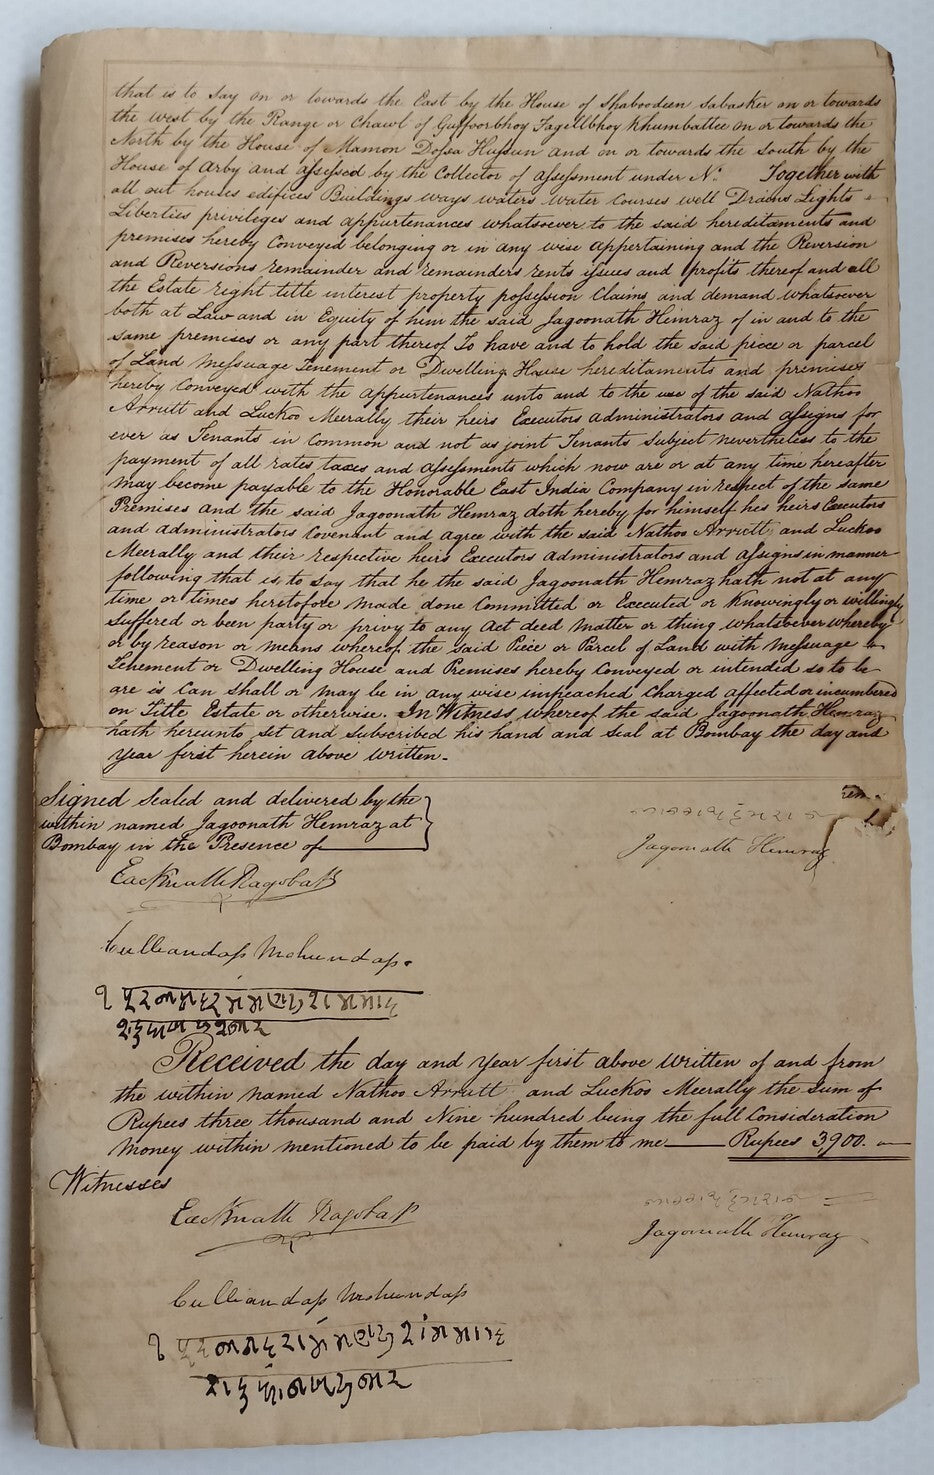 that is to say on or towards the East by the House of Shaboodeen Sabasker on or towards
the west by the Range or Chawl of Guffoorbhoy Fazullbhoy Khumbattee on or towards the
North by the House of Mamon Dossa Hussun and on or towards the South by the
House of Arby and assessed by the Collector of assessment under No. Together with
all out houses edifices Buildings ways waters water courses well Drains Lights
Liberties privileges and appurtenances whatsoever to the said hereditaments and
premises hereby Conveyed belonging or in any wise appertaining and the Reversion
and Reversions remainder and remainders rents issues and profits thereof and all
the Estate right title interest property possession Claims and demand whatsoever
both at Law and in Equity of him the said Jagoonath Hemraz of in and to the
same premises or any part thereof To have and to hold the said piece or parcel
of Land Messuage Tenement or Dwelling House hereditaments and premises
hereby Conveyed with the appurtenances unto and to the use of the said Nathoo
Arrutt and Luckoo Meerally their heirs Executors administrators and assigns for
ever as Tenants in Common and not as joint Tenants Subject nevertheless to the
payment of all rates taxes and assessments which now are or at any time hereafter
may become payable to the Honorable East India Company in respect of the same
Premises and the said Jagoonath Hemraz doth hereby for himself his heirs Executors
and administrators Covenant and agree with the said Nathoo Arrutt and Luckoo
Meerally and their respective heirs Executors administrators and assigns in manner
following that is to say that he the said Jagoonath Hemraz hath not at any
time or times heretofore made done Committed or Executed or Knowingly or willingly
suffered or been party or privy to any Act deed Matter or thing whatsoever whereby
or by reason or means whereof the said Piece or Parcel of Land with Messuage
Tenement or Dwelling House and Premises hereby Conveyed or intended so to be
are is Can Shall or may be in any wise impeached Charged affected or incumbered
on Title Estate or otherwise. In Witness whereof the said Jagoonath Hemraz
hath hereunto set and subscribed his hand and seal at Bombay the day and
year first herein above written.
Signed Sealed and delivered by the
within named Jagoonath Hemraz at
Bombay in the Presence of
Jagonath Hemraz
Eacknath Ragoba
Culliandass Mohundass
Received the day and year first above written of and from
the within named Nathoo Arrutt and Luckoo Meerally the Sum of
Rupees three thousand and Nine hundred being the full Consideration
Money within mentioned to be paid by them to me Rupees 3,900.
Witnesses
Eacknath Ragoba
Jagonath Hemraz
Culliandass Mohundass